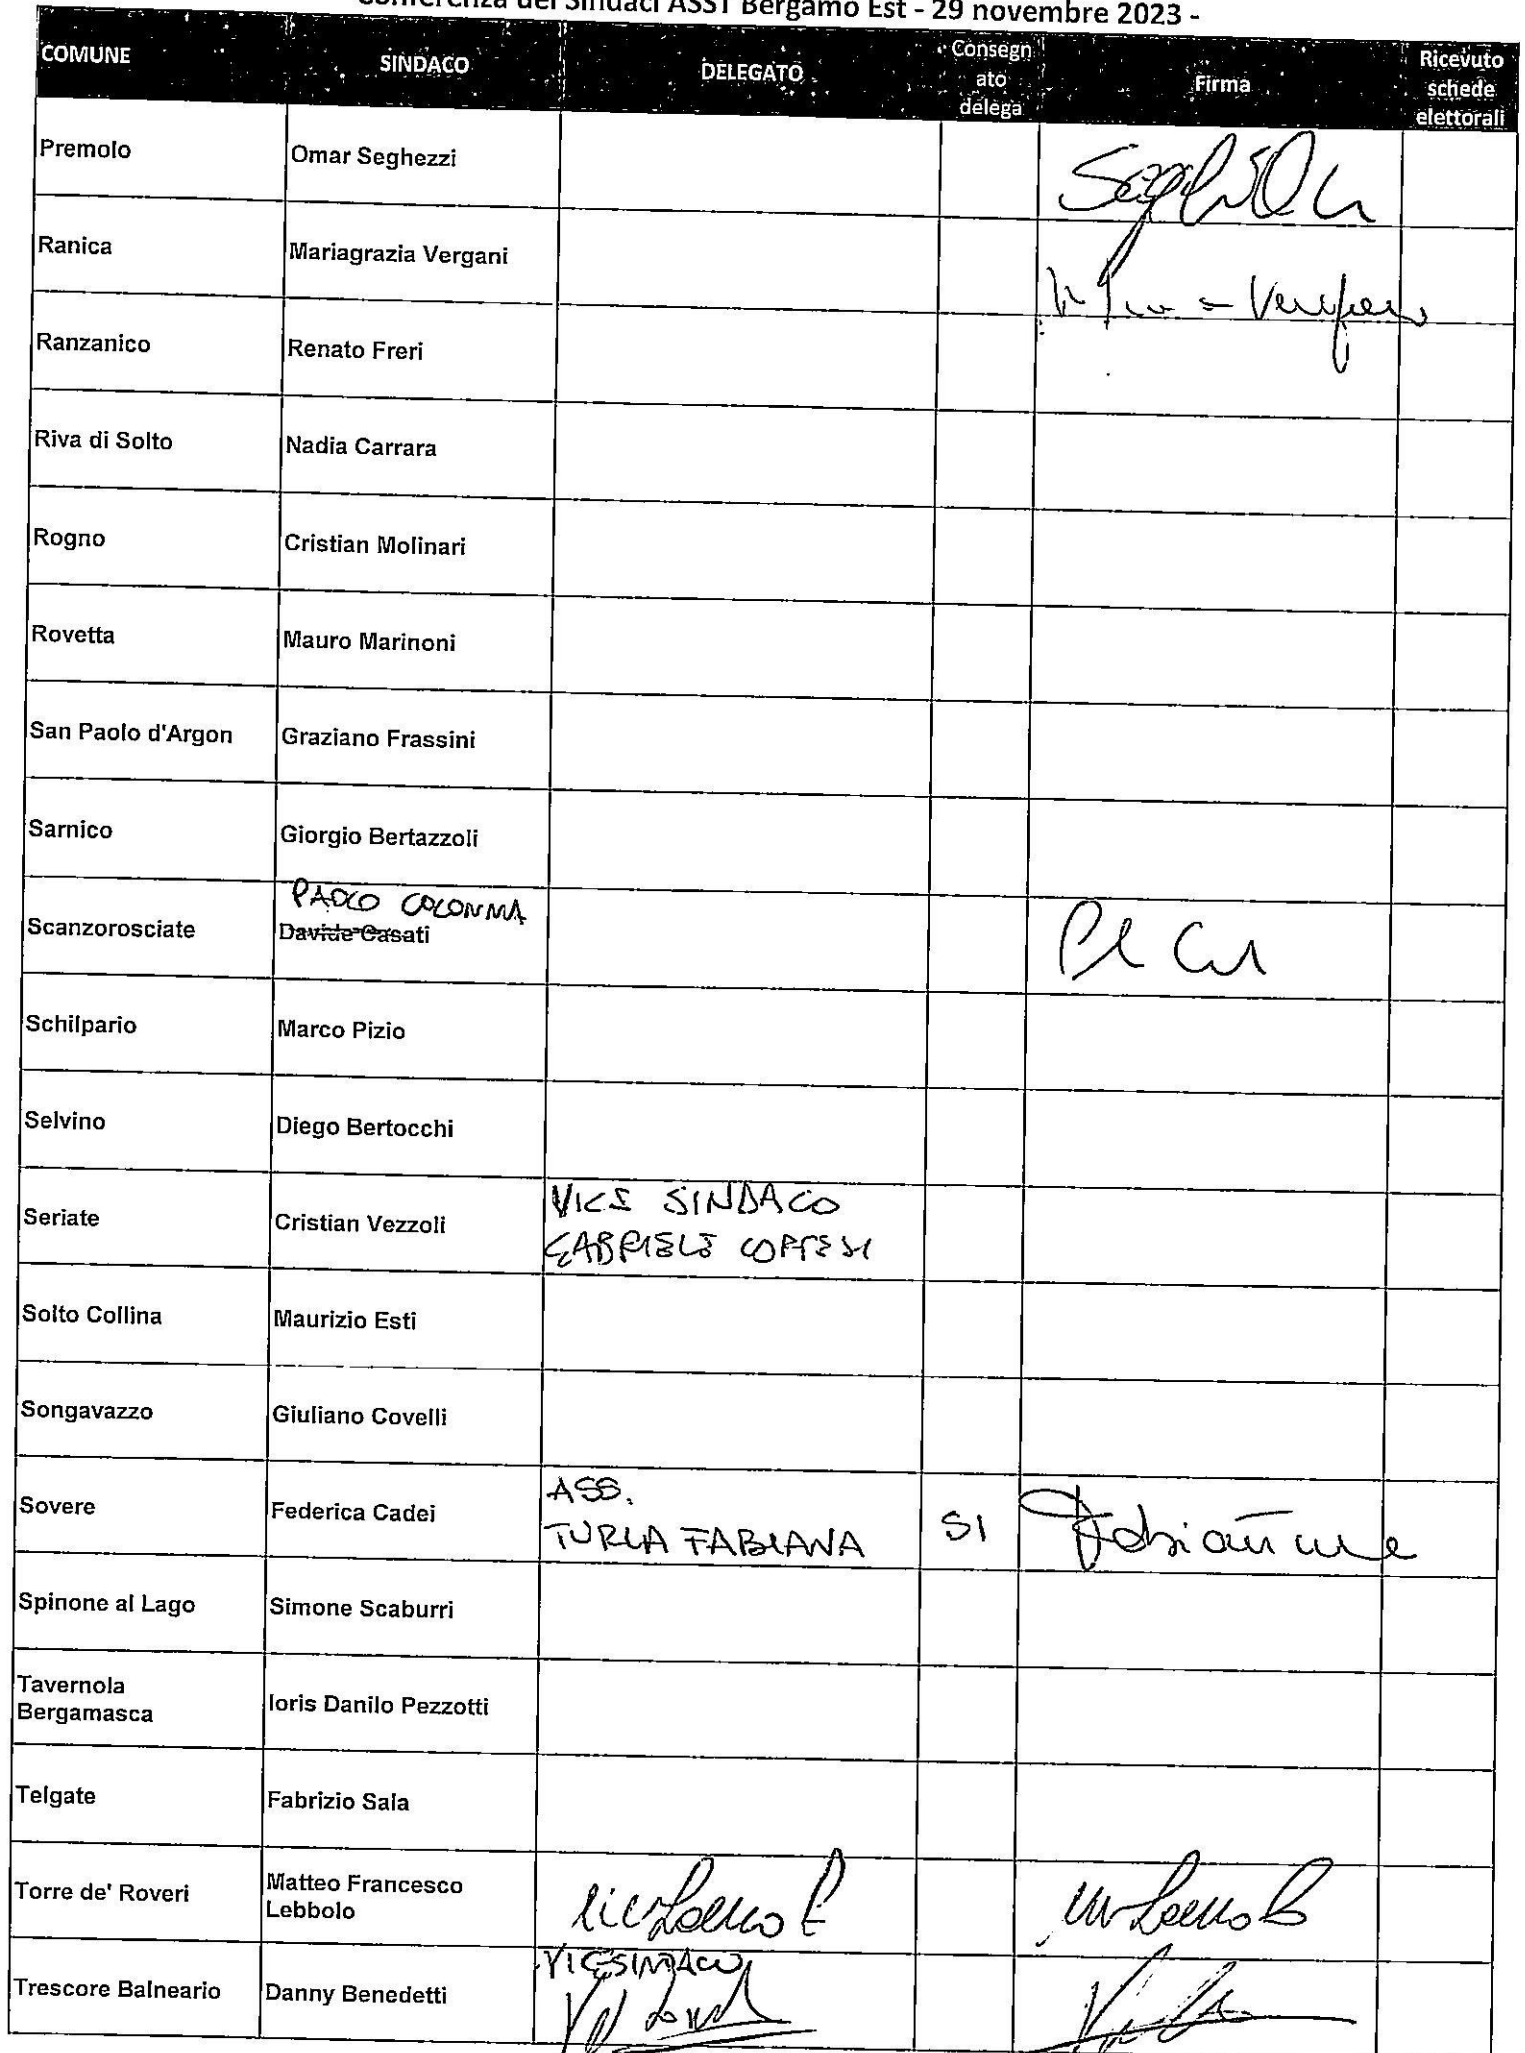 Conferenza dei Sindaci ASST Bergamo Est - 29 novembre 2023 -
COMUNE SINDACO DELEGATO Consegn ato delega Firma Ricevuto schede elettorali
Premolo Omar Seghezzi
Ranica Mariagrazia Vergani
Ranzanico Renato Freri
Riva di Solto Nadia Carrara
Rogno Cristian Molinari
Rovetta Mauro Marinoni
San Paolo d'Argon Graziano Frassini
Sarnico Giorgio Bertazzoli
PAOLO COLONNA
Scanzorosciate Davide Casati
Schilpario Marco Pizio
Selvino Diego Bertocchi
VICE SINDACO
Seriate Cristian Vezzoli GABRIELE CORTESI
Solto Collina Maurizio Esti
Songavazzo Giuliano Covelli
ASS.
Sovere Federica Cadei TURLA FABIANA SI
Spinone al Lago Simone Scaburri
Tavernola Bergamasca Ioris Danilo Pezzotti
Telgate Fabrizio Sala
Torre de' Roveri Matteo Francesco Lebbolo
VICESINDACO
Trescore Balneario Danny Benedetti